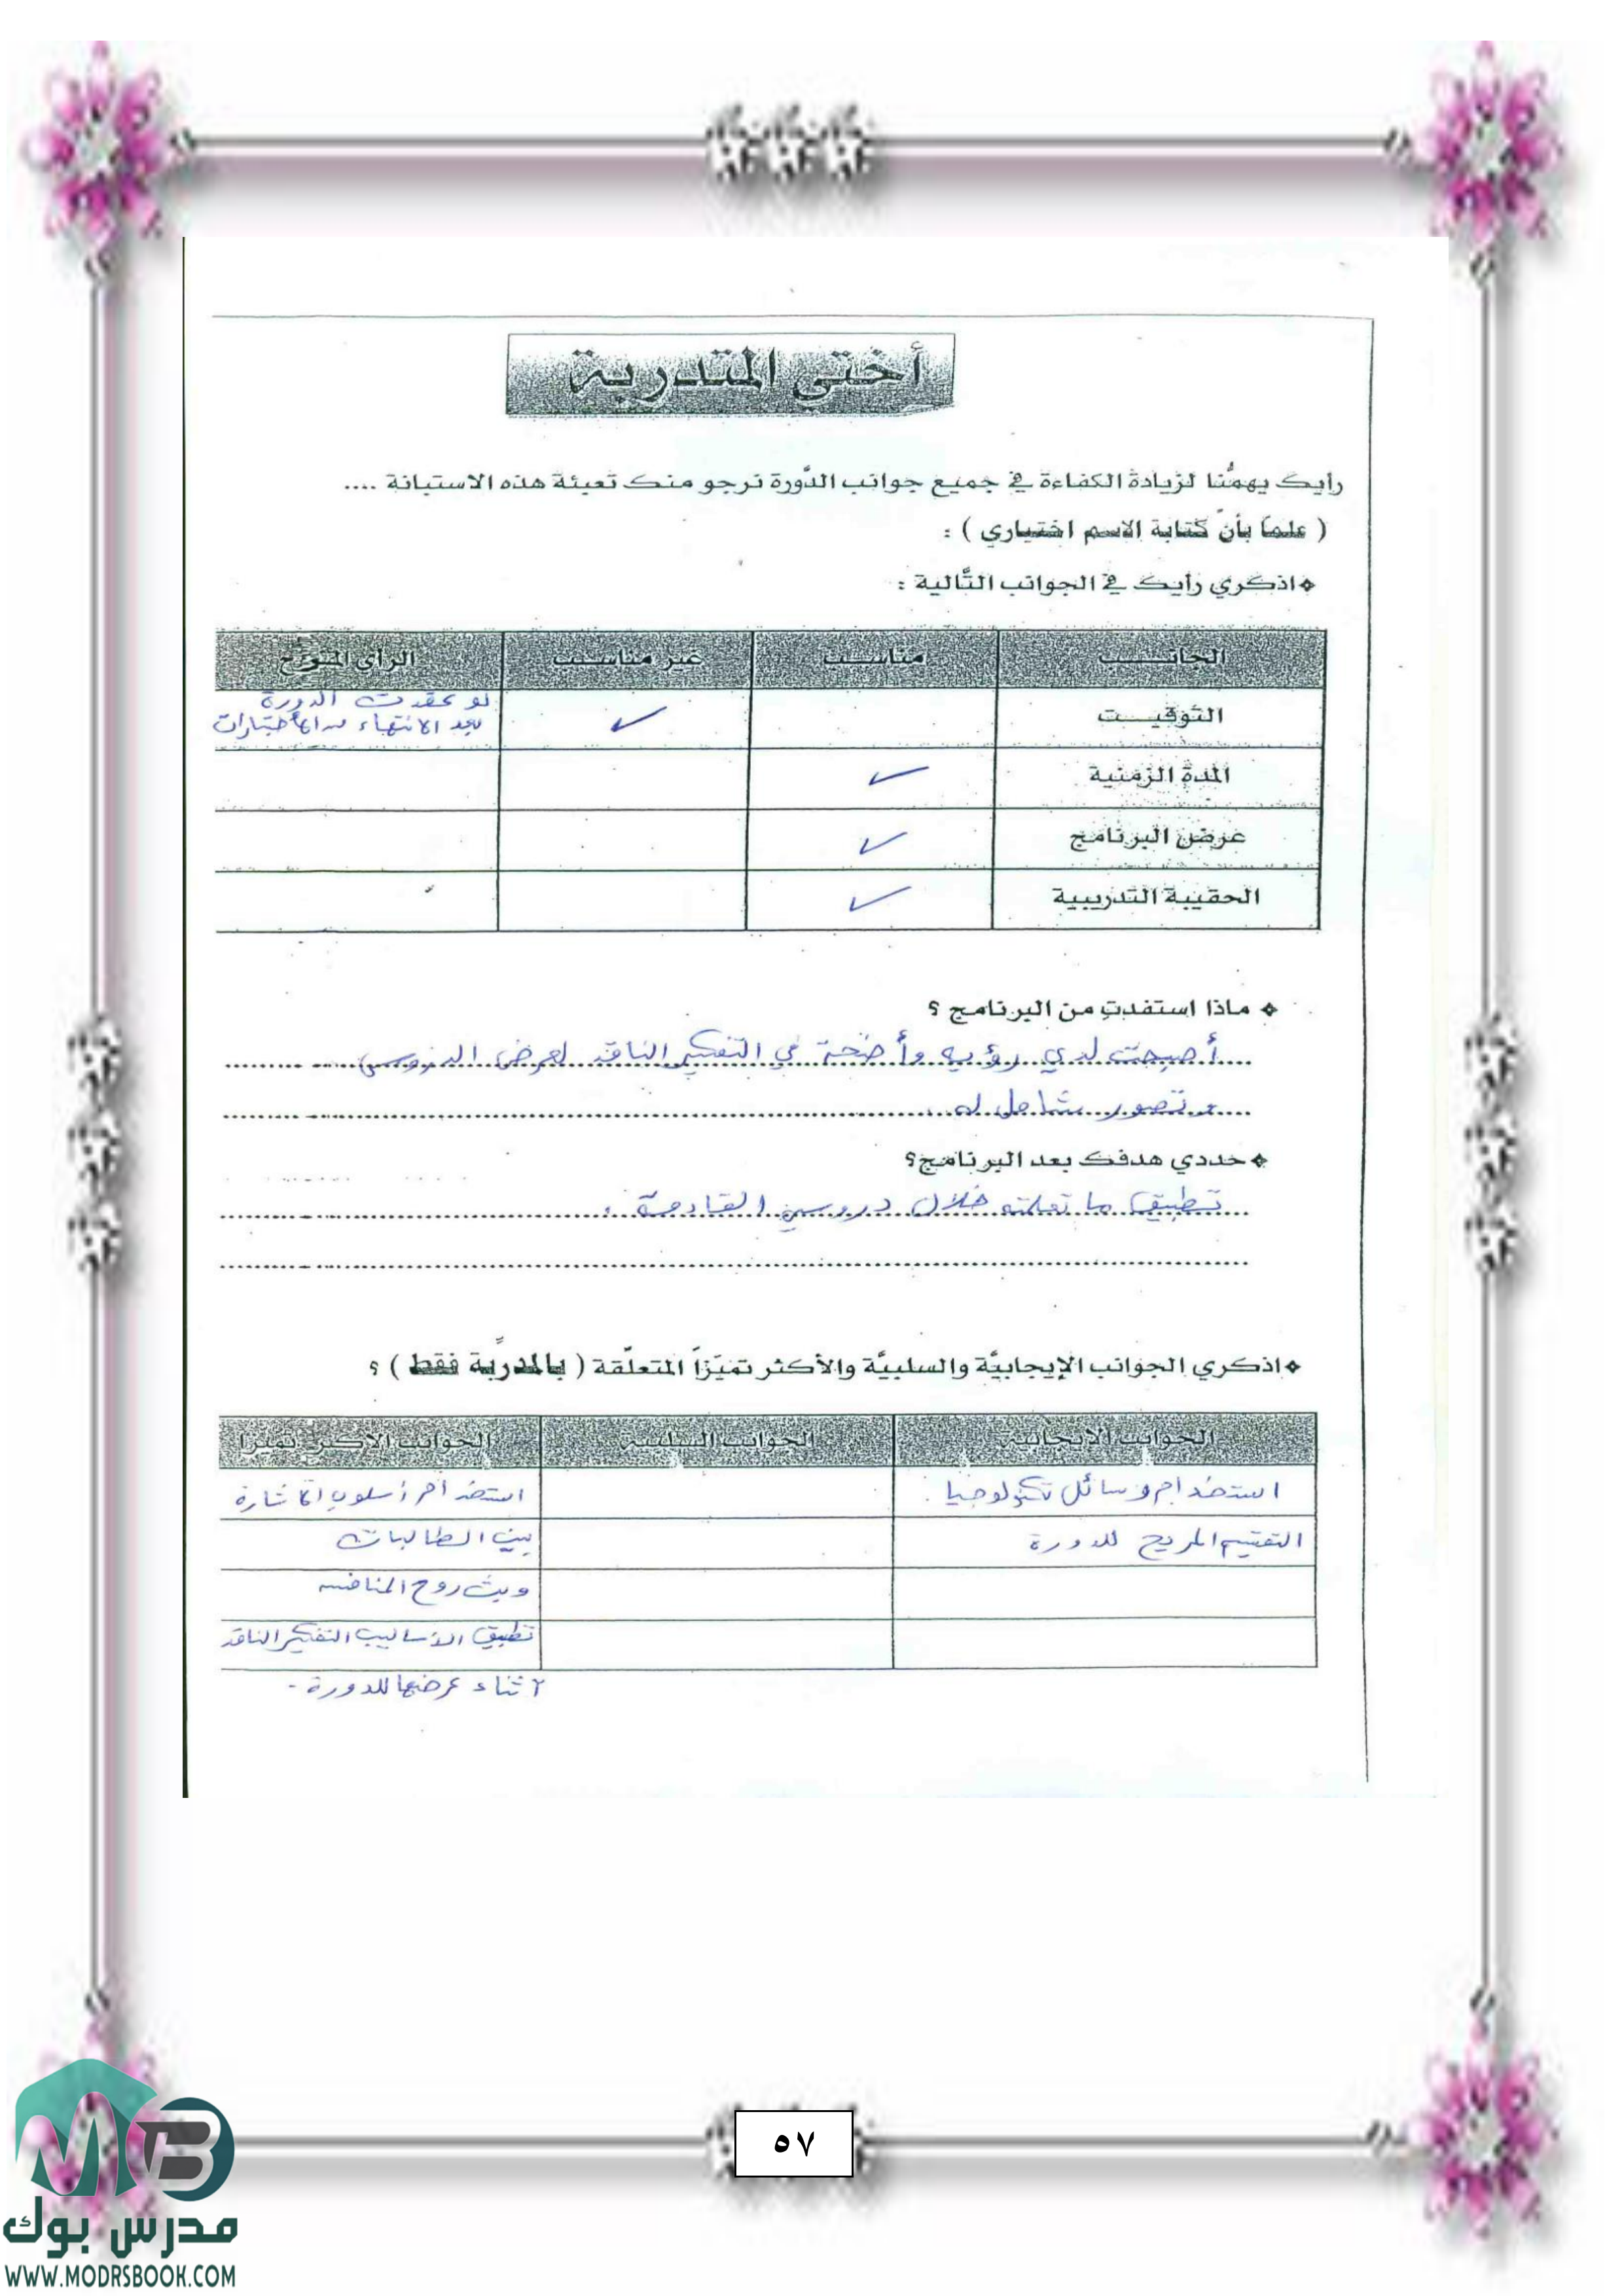 أختي المتدربة
رأيك يهمُّنا لزيادة الكفاءة في جميع جوانب الدَّورة نرجو منك تعبئة هذه الاستبانة ....
( علماً بأنّ كتابة الاسم اختياري ) :
❖اذكري رأيك في الجوانب التَّالية :
الجانب مناسب غير مناسب الرأي المقترح
التوقيت ✓ لو عقدت الدورة
بعد الانتهاء من الاختبارات
المدة الزمنية ✓
عرض البرنامج ✓
الحقيبة التدريبية ✓
❖ ماذا استفدتِ من البرنامج ؟
أصبحت لدي رؤية وأضحة في التفكير الناقد لعرض الدروس
و تصور شامل له .
❖حددي هدفك بعد البرنامج؟
تطبيق ما تعلمته خلال دروسي القادمة .
❖اذكري الجوانب الإيجابيَّة والسلبيَّة والأكثر تميّزاً المتعلّقة ( بالمدرِّبة فقط ) ؟
الجوانب الايجابية الجوانب السلبية الجوانب الاكثر تميزا
استخدام وسائل تكنولوجيا . استخدام أسلوب الاثارة
التقسيم المريح للدورة بين الطالبات
وبث روح المنافسه
تطبيق الأساليب التفكير الناقد
اثناء عرضها للدورة -
٥٧
MB
مدرس بوك
WWW.MODRSBOOK.COM